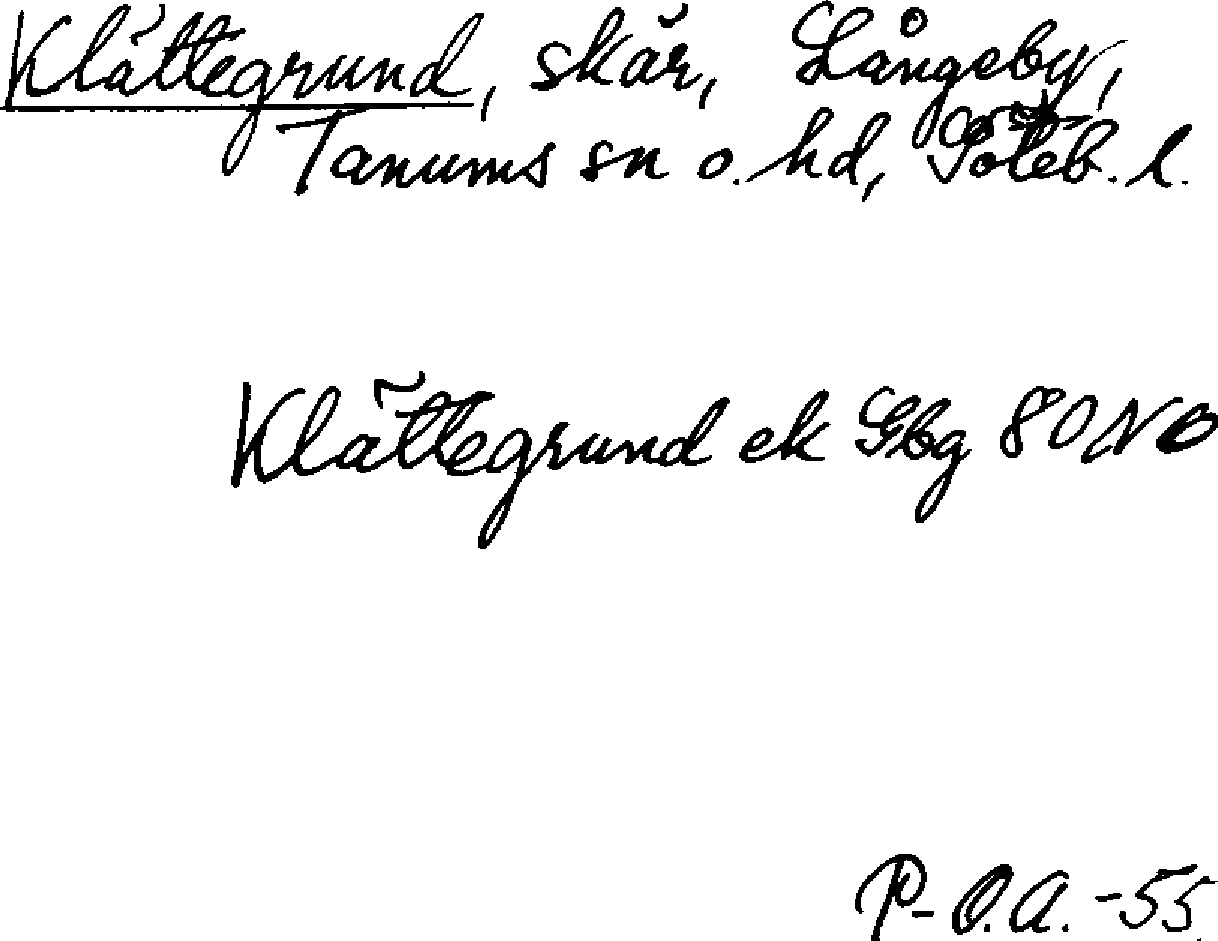 Klättegrund, skär, Långeby,
Tanums sn o. hd, Göteb. l.
Klättegrund ek Gbg 80 NO
P-O.A. -55.